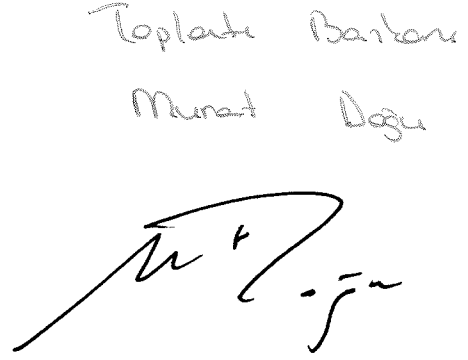 Toplantı Başkanı
Murat Doğu